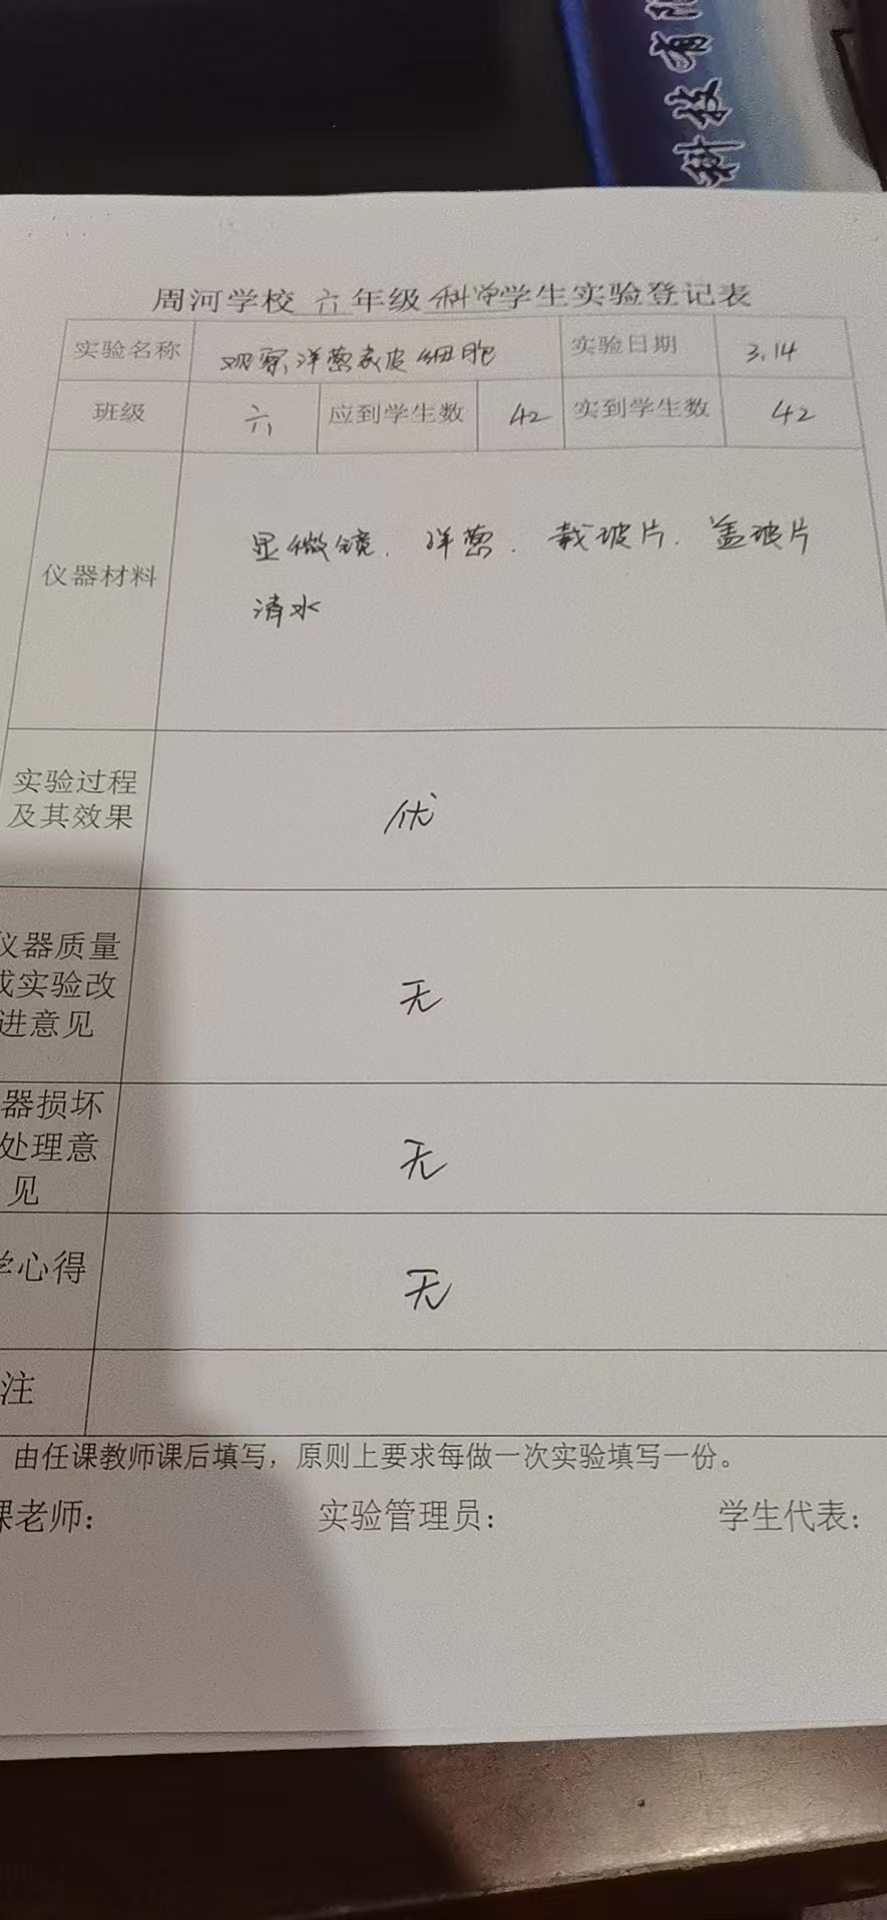 科技有限
周河学校 六 年级 科学 学生实验登记表
实验名称 观察洋葱表皮细胞 实验日期 3.14
班级 六 应到学生数 42 实到学生数 42
仪器材料
显微镜. 洋葱. 载玻片. 盖玻片
清水
实验过程
及其效果
优
仪器质量
或实验改
进意见
无
器损坏
处理意
见
无
学心得
无
注
由任课教师课后填写，原则上要求每做一次实验填写一份。
课老师： 实验管理员： 学生代表：